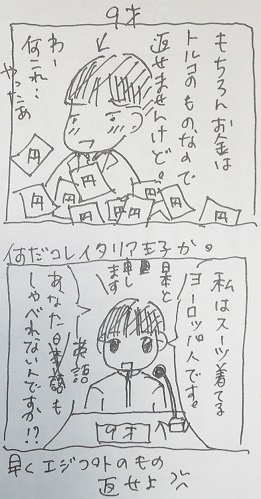 9才
もちろんお金は
トルコのものなので
返せませんけど。
わー
何これ…
やったぁ
円
円
円
円
円
円
円
円
何だコレイタリア王子か。
私はスーツ着てる
ヨーロッパ人です。
日本と
申し
ます
英語
あなた日本語も
しゃべれないんですか!?
9才
早くエジプトのもの
返せよ